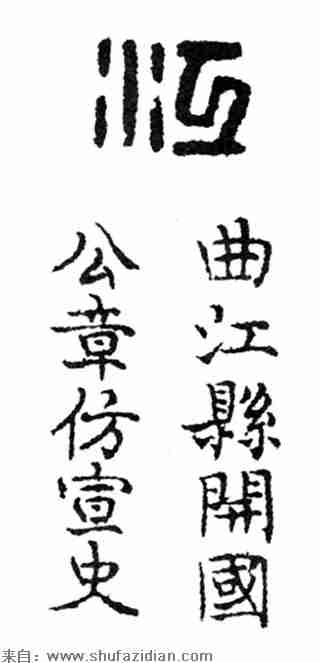 江
曲江縣開國
公章仿宣史
来自：www.shufazidian.com